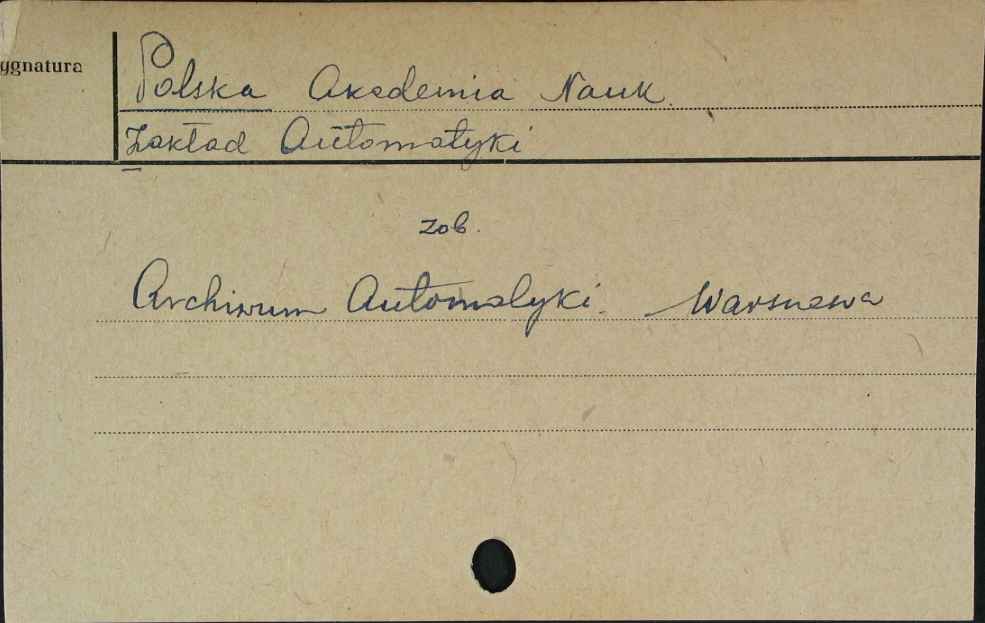 ygnatura
Polska Akademia Nauk.
Zakład Automatyki
zob.
Archiwum Automatyki. Warszawa